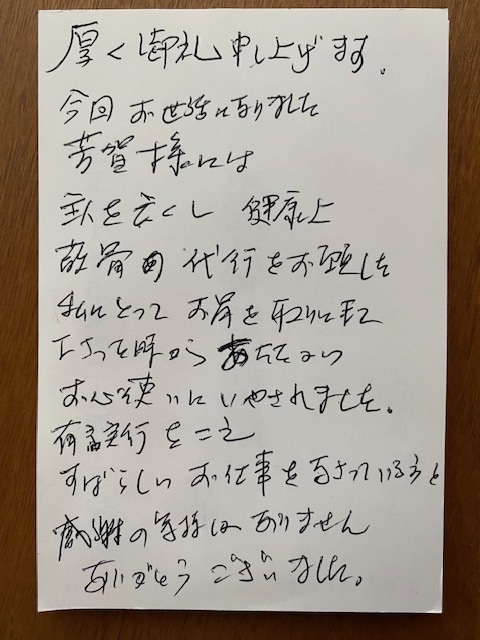 厚く御礼申し上げます。
今回お世話になりました
芳賀様には
主人を亡くし 健康上
散骨の代行をお願した
私にとってお骨を取りに来て
下さった時からあたたかい
お心使いにいやされました。
有言実行をこえ
すばらしいお仕事をなさっている方と
感謝の気持しかありません
ありがとうございました。